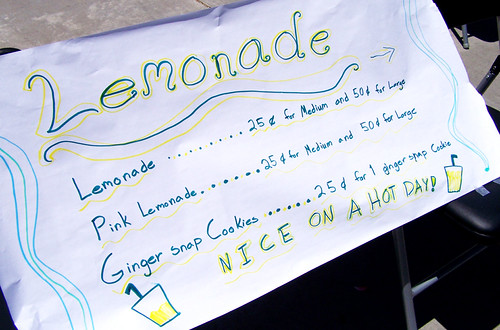 Lemonade
Lemonade ......... 25¢ for Medium and 50¢ for Large
Pink Lemonade...... 25¢ for Medium and 50¢ for Large
Ginger snap Cookies ...... 25¢ for 1 ginger snap Cookie
NICE ON A HOT DAY!